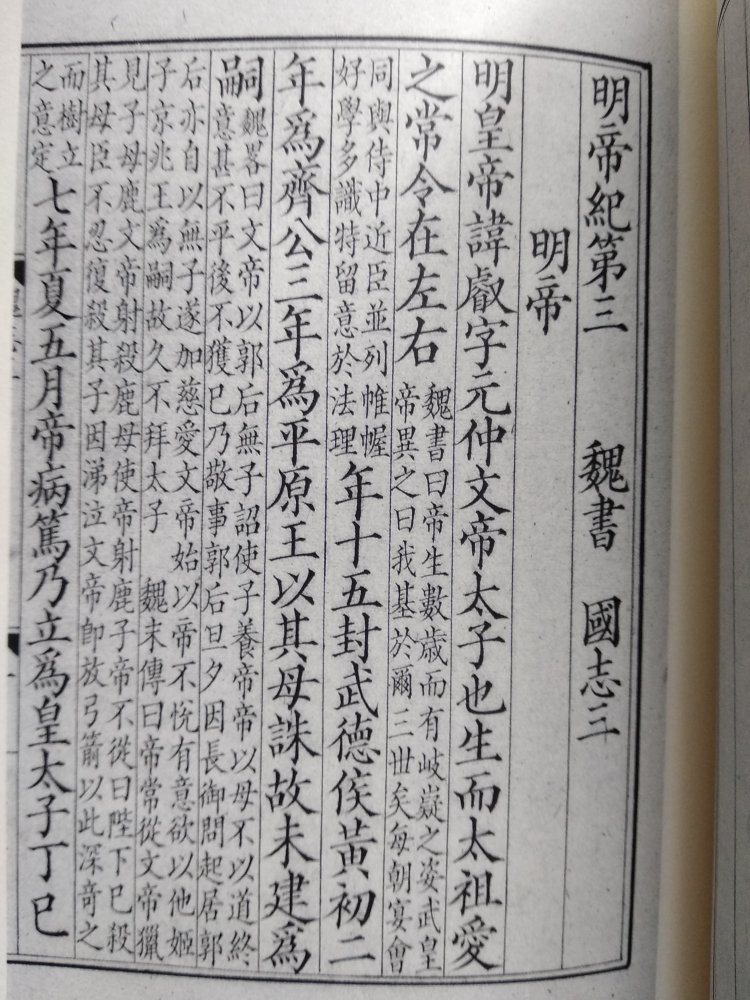 明帝紀第三 魏書 國志三
明帝
明皇帝諱叡字元仲文帝太子也生而太祖愛
之常令在左右
魏書曰帝生數歳而有岐嶷之姿武皇
帝異之曰我基於爾三世矣每朝宴會
同與侍中近臣並列帷幄
好學多識特留意於法理
年十五封武德侯黃初二
年爲齊公三年爲平原王以其母誅故未建爲
嗣
魏畧曰文帝以郭后無子詔使子養帝帝以母不以道終
意甚不平後不獲已乃敬事郭后旦夕因長御問起居郭
后亦自以無子遂加慈愛文帝始以帝不悅有意欲以他姬
子京兆王爲嗣故久不拜太子 魏末傳曰帝常從文帝獵
見子母鹿文帝射殺鹿母使帝射鹿子帝不從曰陛下已殺
其母臣不忍復殺其子因涕泣文帝卽放弓箭以此深奇之
而樹立
之意定
七年夏五月帝病篤乃立爲皇太子丁巳